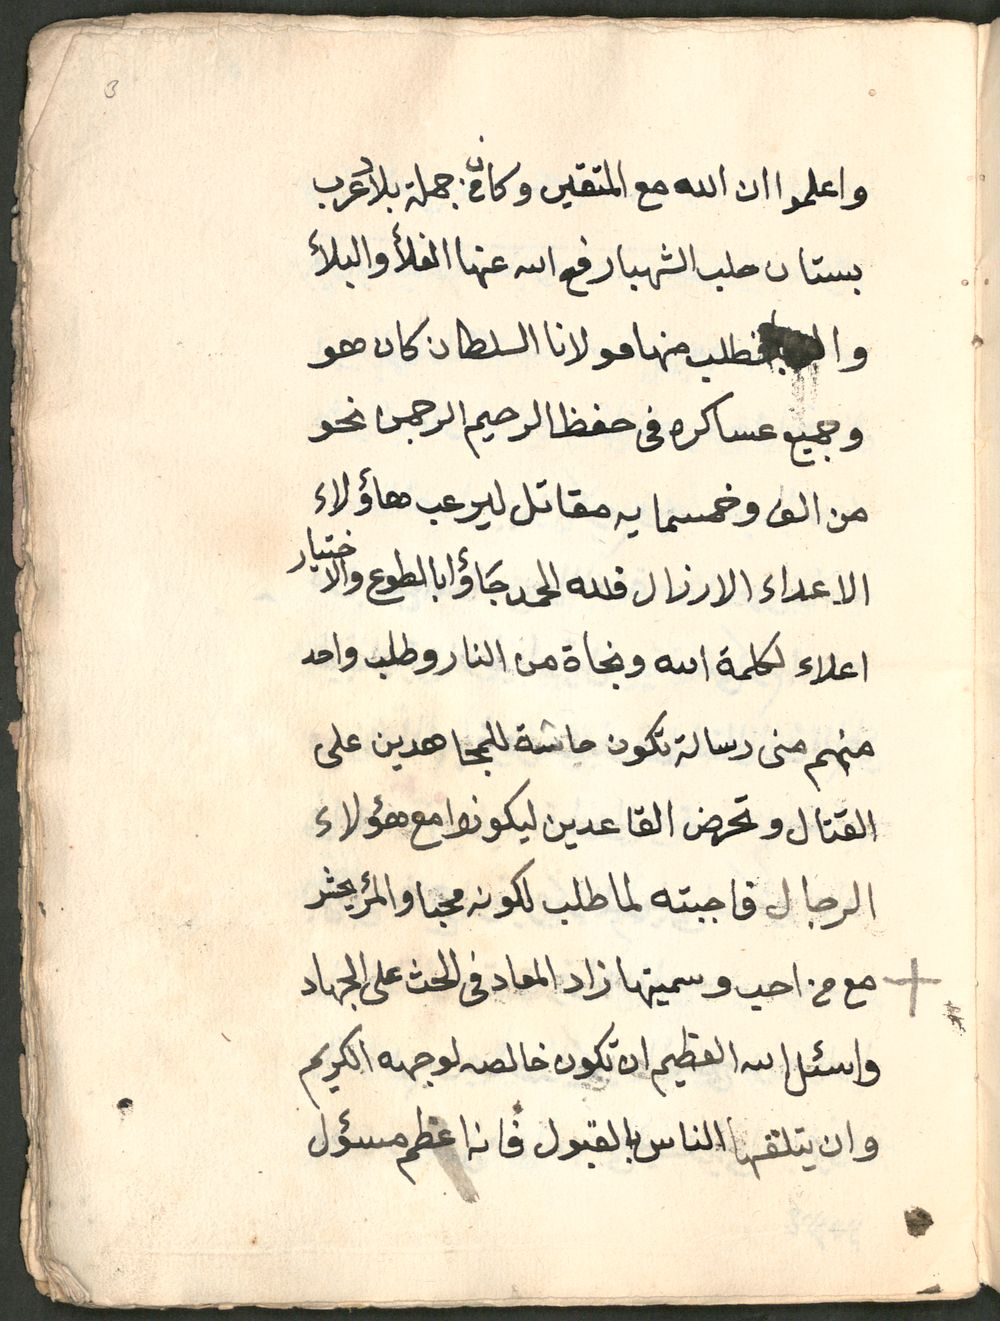 3
واعلموا ان الله مع المتقين وكان من جملة بلاد عرب
بستان حلب الشهبا رفع الله عنها الغلأ والبلأ
فطلب منها مولانا السلطان كان هو
وجميع عساكره فى حفظ الرحيم الرحمن نحو
من الف وخمسمايه مقاتل ليرعب هاؤلاء
الاعداء الارزال فلله الحمد جاؤا بالطوع والاختيار
اعلاء لكلمة الله ونجاة من النار وطلب واحد
منهم منى رسالة تكون حاثة للمجاهدين على
القتال وتحرض القاعدين ليكونوا مع هؤلاء
الرجال فاجبته لما طلب لكونه محبا والمرؤ يحشر
مع من احب وسميتها زاد المعاد فى الحث على الجهاد
واسئل الله العظيم ان تكون خالصه لوجهه الكريم
وان يتلقها الناس بالقبول فانه اعظم مسؤل